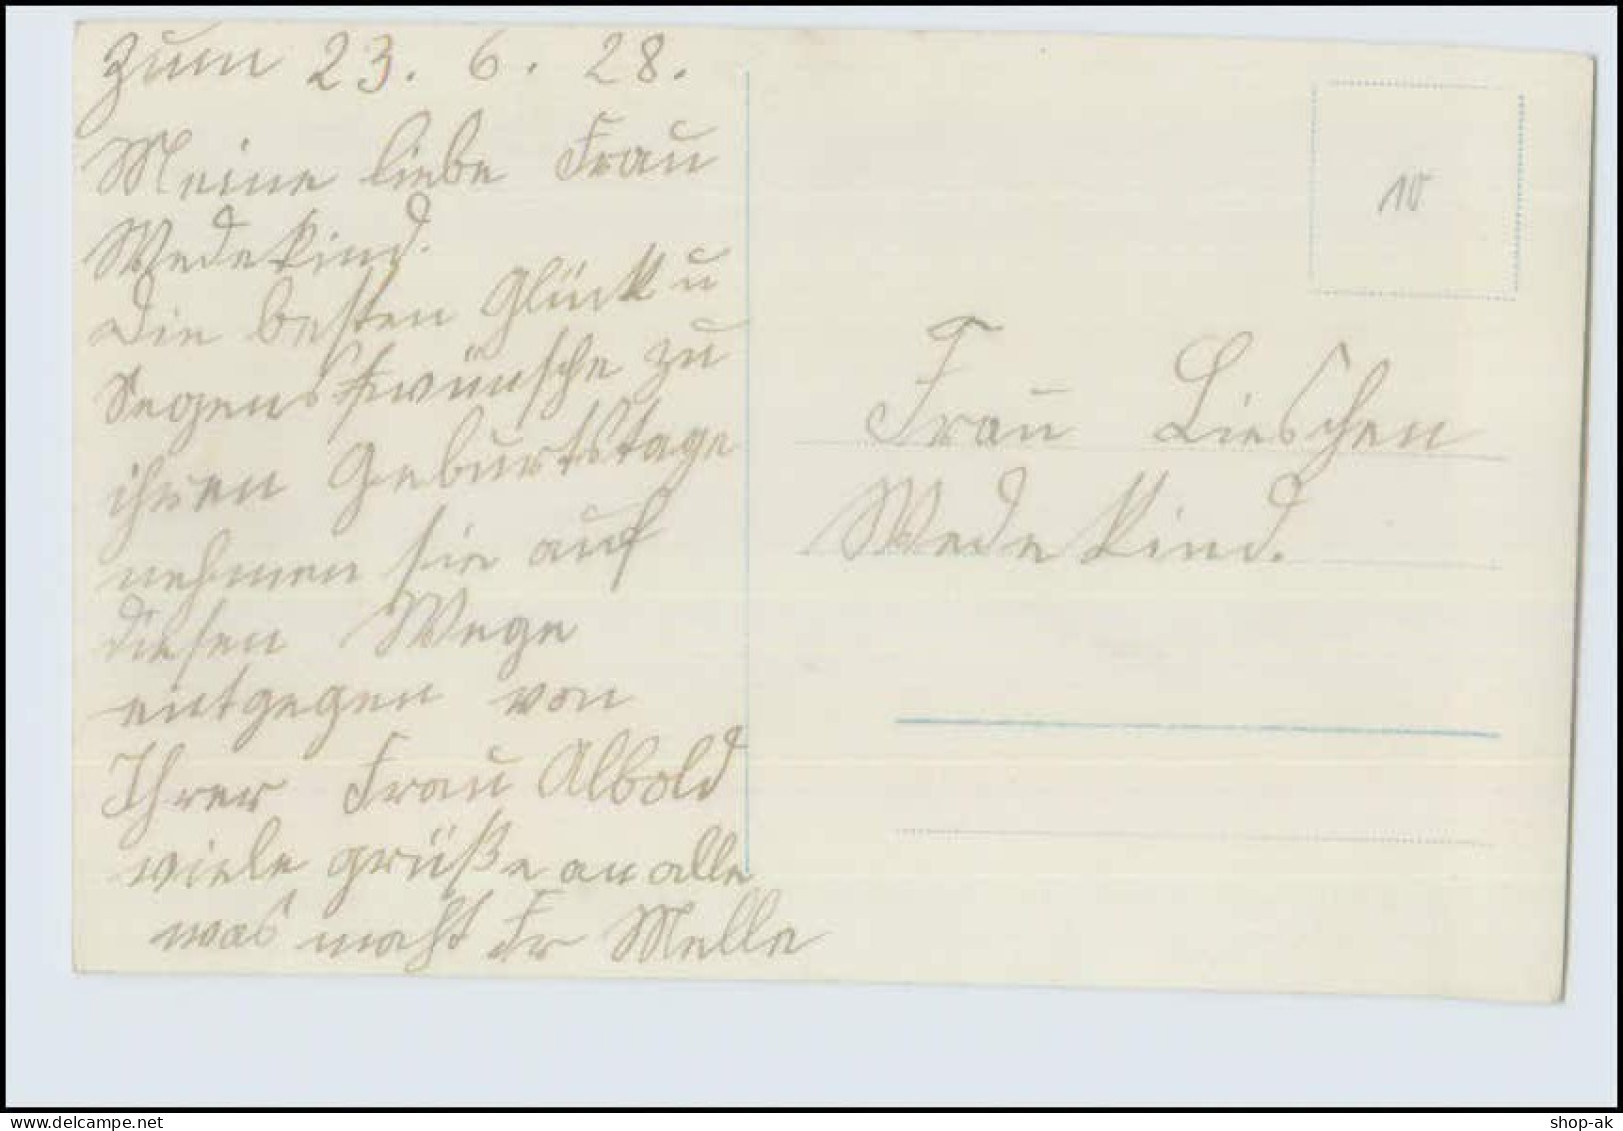 Zum 23. 6. 28.
Meine liebe Frau
Wedekind.
Die besten Glück u
Segenswünsche zu
ihren Geburtstage
nehmen sie auf
diesen Wege
entgegen von
Ihrer Frau Albold
viele grüße an alle
was macht Fr Melle
10
Frau Lieschen
Wedekind.
shop-ak